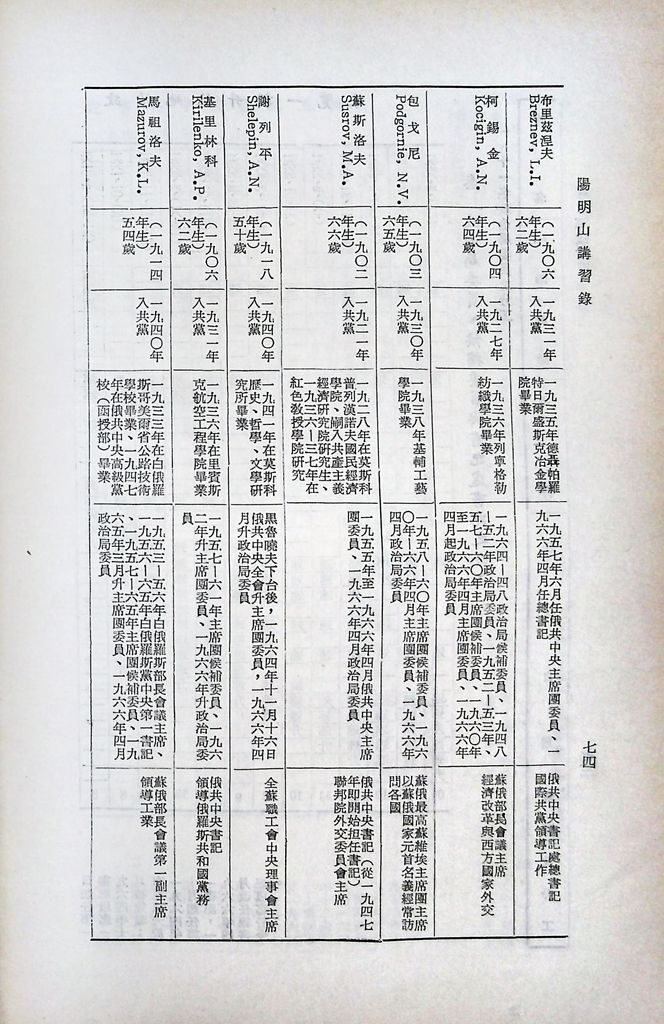 陽明山講習錄
七四
布里茲涅夫
Breznev, L.I.
(一九〇六
年生)
六二歲
一九三一年
入共黨
一九三五年德聶帕羅
特日爾盛斯克冶金學
院畢業
一九五七年六月任俄共中央主席團委員、一
九六六年四月任總書記
俄共中央書記處總書記
國際共黨領導工作
柯錫金
Kocigin, A.N.
(一九〇四
年生)
六四歲
一九二七年
入共黨
一九三六年列寧格勒
紡織學院畢業
一九六四—四八政治局候補委員、一九四八
—五二年政治局委員、一九五二—五三年、
五七—六〇年主席團候補委員、一九六〇年
至一九六六年四月主席團委員、一九六六年
四月起政治局委員
蘇俄部長會議主席
經濟改革與西方國家外交
包戈尼
Podgornie, N.V.
(一九〇三
年生)
六五歲
一九三〇年
入共黨
一九三八年基輔工藝
學院畢業
一九五八—六〇年主席團候補委員、一九六
〇年—六六年四月主席團委員、一九六六年
四月政治局委員
蘇俄最高蘇維埃主席團主席
以蘇俄國家元首名義經常訪
問各國
蘇斯洛夫
Susrov, M.A.
(一九〇二
年生)
六六歲
一九二一年
入共黨
一九二八年在莫斯科
普列漢諾夫國民經濟
學院、嗣入共產主義
經濟研究院研究生、
一九三六—三七年在
紅色教授學院研究
一九五五年至一九六六年四月俄共中央主席
團委員、一九六六年四月政治局委員
俄共中央書記(從一九四七
年即開始担任書記)
聯邦院外交委員會主席
謝列平
Shelepin, A.N.
(一九一八
年生)
五十歲
一九四〇年
入共黨
一九四一年在莫斯科
歷史、哲學、文學研
究所畢業
黑魯曉夫下台後,一九六四年十一月十六日
俄共中央全會升主席團委員,一九六六年四
月升政治局委員
全蘇職工會中央理事會主席
基里林科
Kirilenko, A.P.
(一九〇六
年生)
六二歲
一九三一年
入共黨
一九三六年在里賓斯
克航空工程學院畢業
一九五七—六一年主席團候補委員、一九六
二年升主席團委員、一九六六年升政治局委
員
俄共中央書記
領導俄羅斯共和國黨務
馬祖洛夫
Mazurov, K.L.
(一九一四
年生)
五四歲
一九四〇年
入共黨
一九三三年在白俄羅
斯哥美爾省公路技術
學校畢業、一九四七
年在俄共中央高級黨
校(函授部)畢業
一九五三—五六年白俄羅斯部長會議主席、
一九五六—六五年白俄羅斯黨中央第一書記
、一九五七—六五年主席團候補委員、一九
六五年三月升主席團委員、一九六六年四月
政治局委員
蘇俄部長會議第一副主席
領導工業